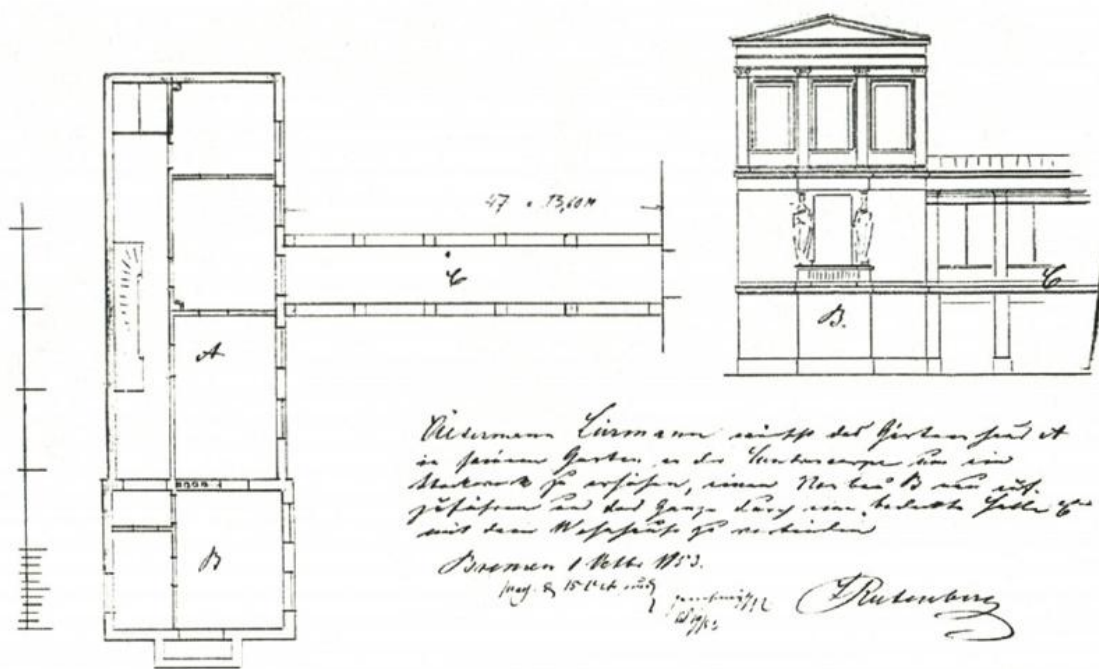 47 = 13,60 M
C
A
B
B.
C
Aeltermann Lürmann wünscht das Gartenhaus A
in seinem Garten an der Contrescarpe um ein
Stockwerk zu erhöhen, einen Neubau B neu auf-
zuführen und das Ganze durch eine bedeckte Halle C
mit dem Wohnhause zu verbinden
Bremen 1 Octbr 1853.
15
LRutenberg